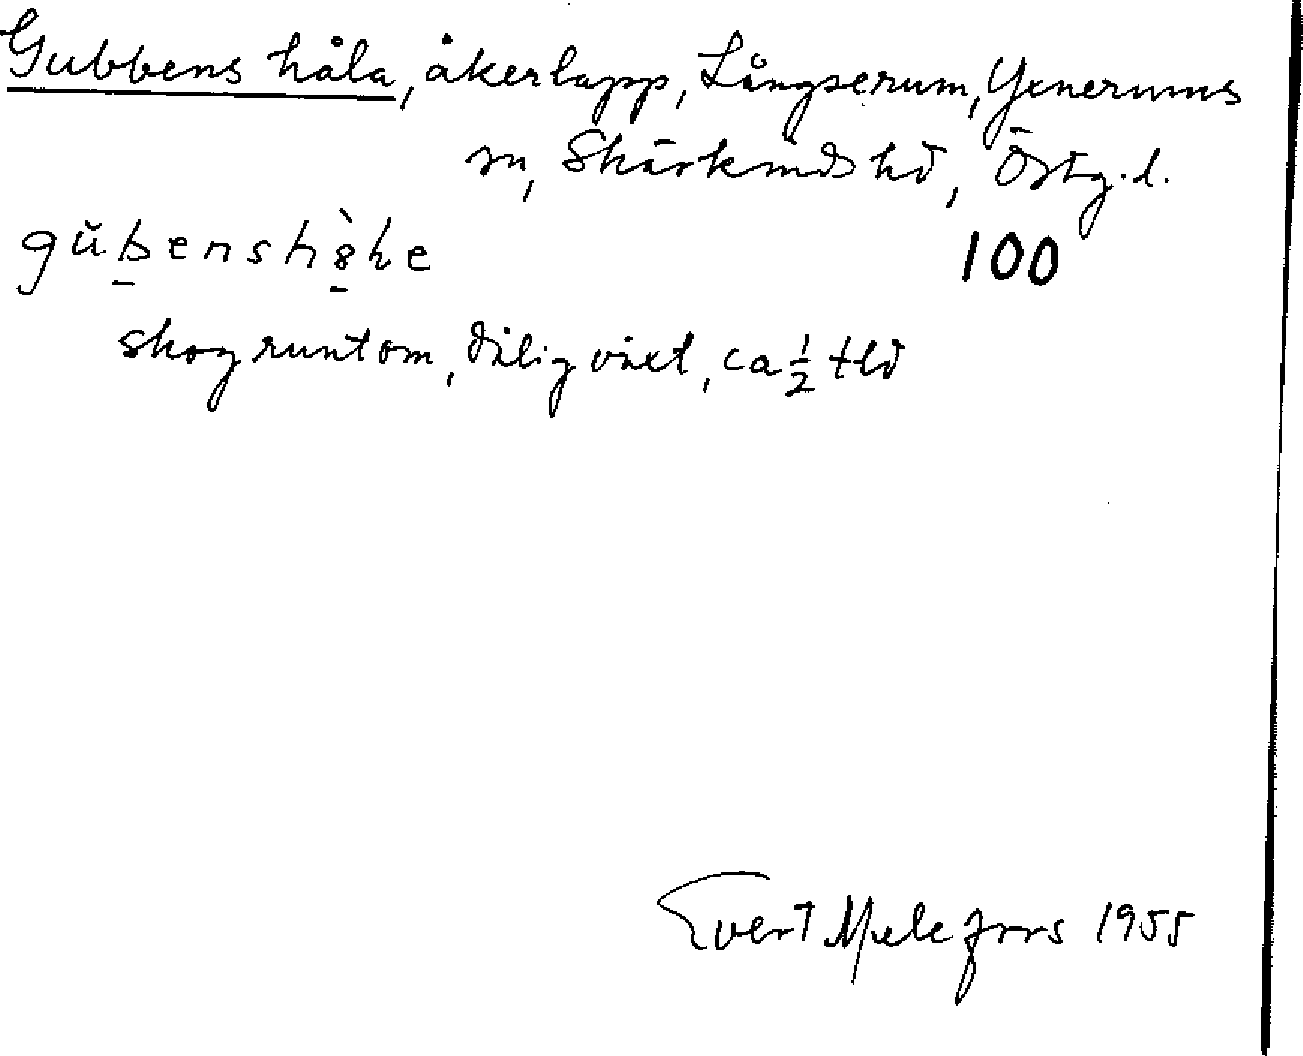 Gubbens håla, åkerlapp, Långserum, Yxnerums
sn, Skärkinds hd, Östg. l.
100
skog runtom, dålig växt, ca ½ tld
Evert Melefors 1955